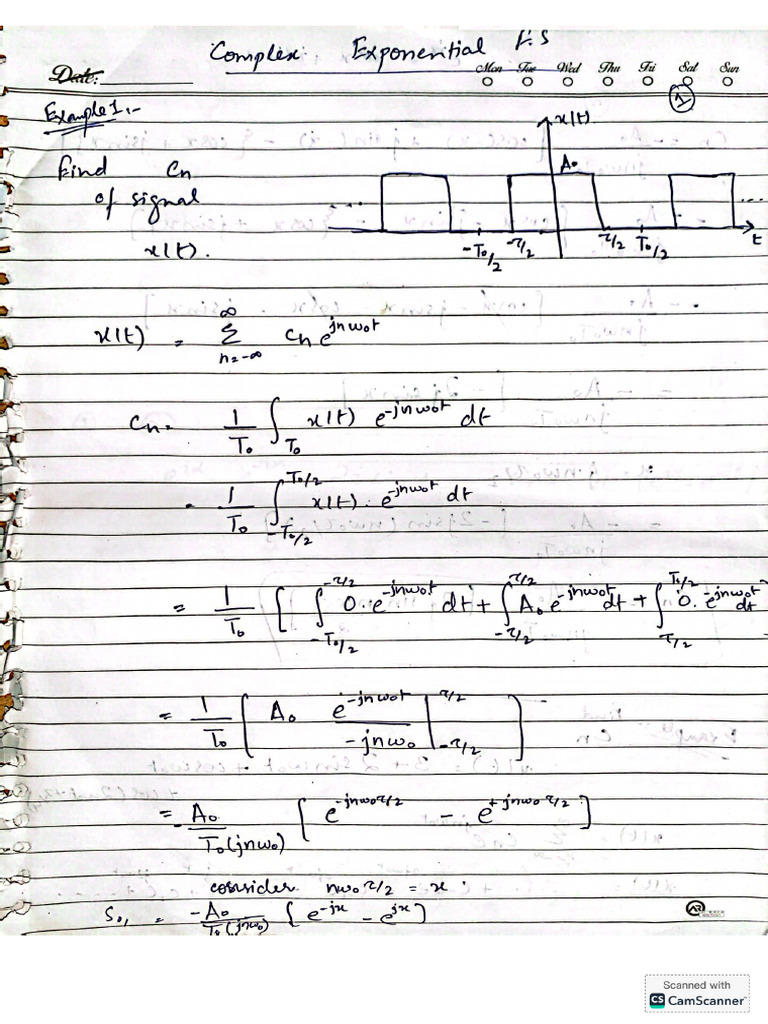 Complex Exponential F.S
Date: Mon Tue Wed Thu Fri Sat Sun
1
Example 1:-
Find Cn
of signal
x(t).
x(t)
A₀
... ...
-T₀/2 -τ/2 τ/2 T₀/2 t
x(t) = ∑_{n=-∞}^{∞} Cn e^{jnω₀t}
Cn = 1/T₀ ∫_{T₀} x(t) e^{-jnω₀t} dt
= 1/T₀ ∫_{-T₀/2}^{T₀/2} x(t). e^{-jnω₀t} dt
= 1/T₀ [ ∫_{-T₀/2}^{-τ/2} 0.e^{-jnω₀t} dt + ∫_{-τ/2}^{τ/2} A₀ e^{-jnω₀t} dt + ∫_{τ/2}^{T₀/2} 0. e^{-jnω₀t} dt
= 1/T₀ [ A₀ e^{-jnω₀t}/-jnω₀ |_{-τ/2}^{τ/2} ]
= -A₀/T₀(jnω₀) [ e^{-jnω₀τ/2} - e^{+jnω₀τ/2} ]
consider nω₀τ/2 = x.
So, = -A₀/T₀(jnω₀) [ e^{-jx} - e^{jx} ]
Scanned with
CS CamScanner